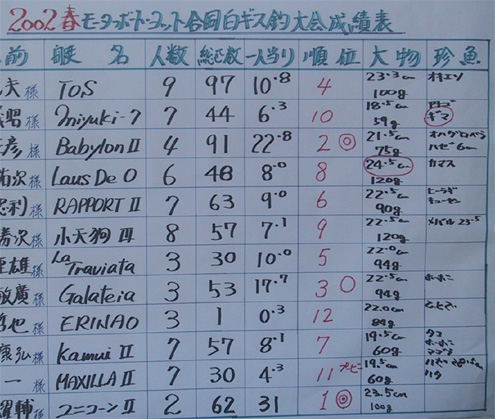 2002春モーターボート・ヨット合同白キス釣大会成績表
前 艇名 人数 総匹数 一人当り 順位 大物 珍魚
夫様 TOS 9 97 10.8 4 23.3cm 100g オキエソ
昭様 Miyuki-7 7 44 6.3 10 18.5cm 59g ギマ
彦様 Babylon II 4 91 22.8 2 ◎ 21.5cm 75g オハグロベラ ハゼ 6cm
沢様 Laus De O 6 48 8.0 8 24.5cm 120g カマス
利様 RAPPORT II 7 63 9.0 6 22.5cm 90g ヒイラギ キューセン
沢様 小天狗 III 8 57 7.1 9 22.5cm 120g メバル 23.5
雄様 La Traviata 3 30 10.0 5 22.0cm 94g
廣様 Galateia 3 53 17.7 3 ○ 22.5cm 94g
也様 ERINAO 3 1 0.3 12 22.0cm 84g
弘様 Kamui II 7 57 8.1 7 19.5cm 60g タコ
一様 MAXILLA II 7 30 4.3 11 ブービー 19.5cm 60g
輔様 ユニコーン II 2 62 31 1 ◎ 23.5cm 100g